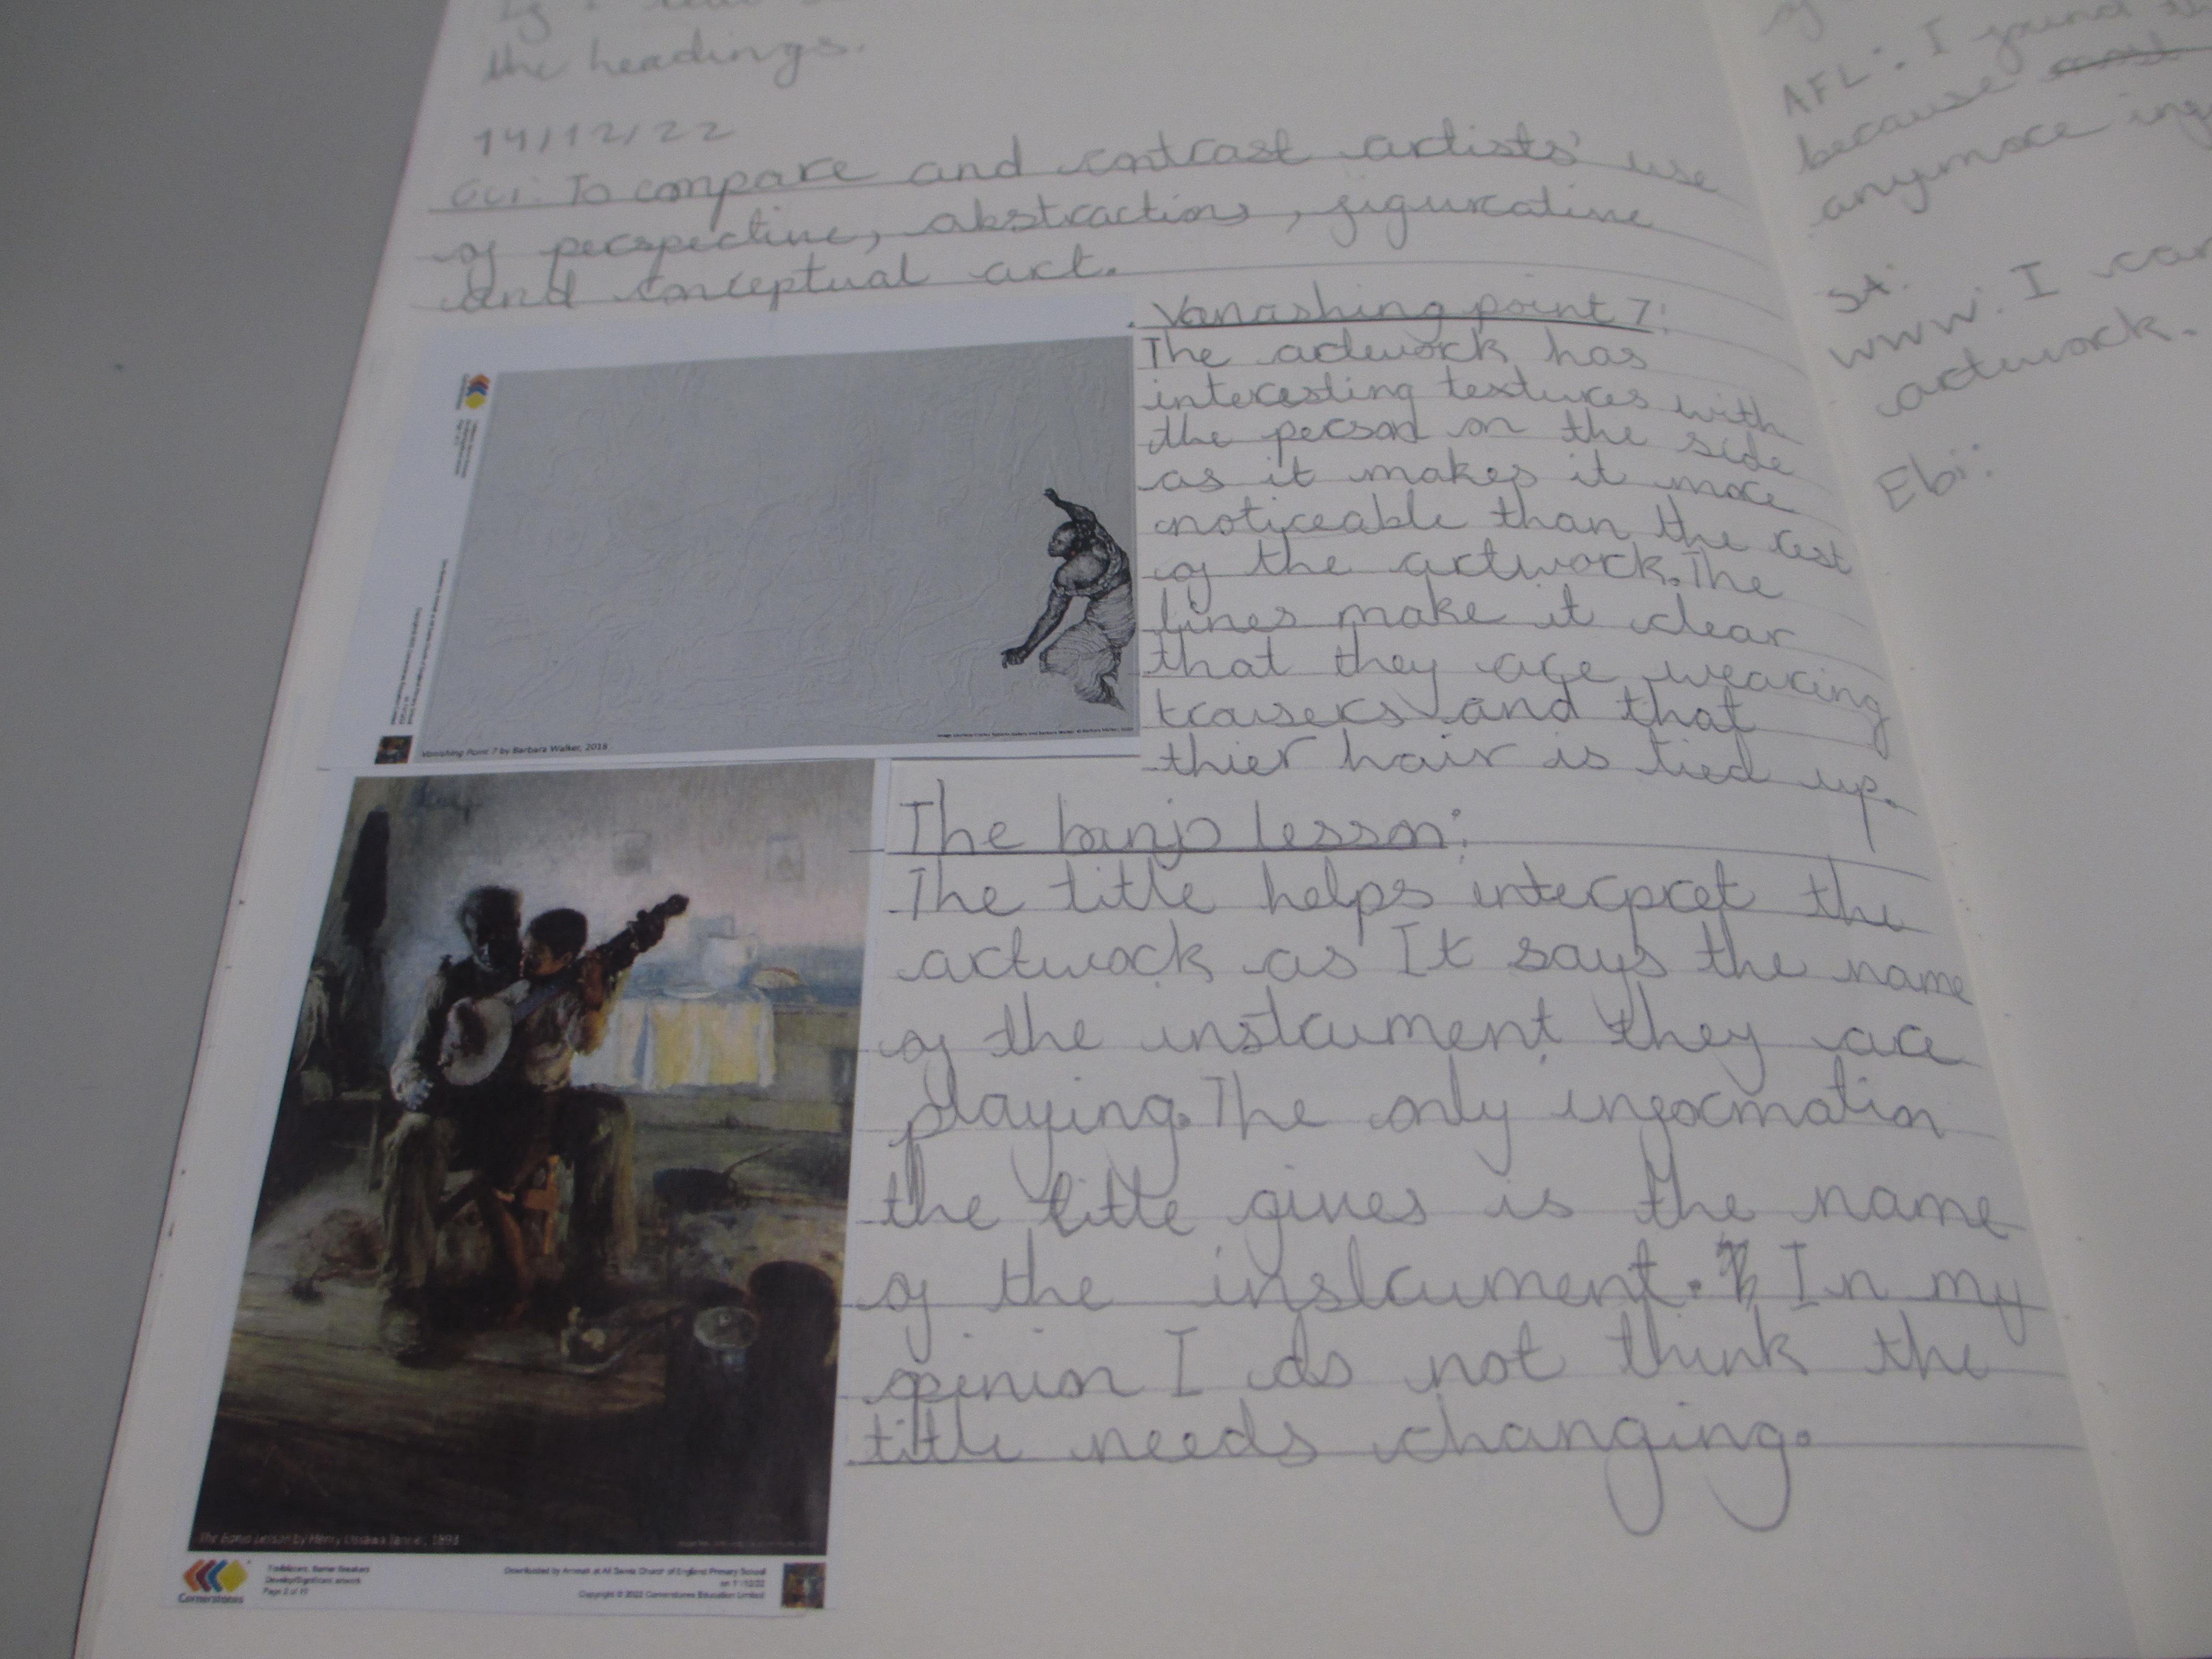 the headings.
14/12/22
To compare and contrast artists' use
of perspective, abstraction, figurative
and conceptual art.
Vanashing point 7:
The artwork has
interesting textures with
the person on the side
as it makes it more
noticeable than the rest
of the artwork. The
lines make it clear
that they are wearing
trousers and that
thier hair is tied up.
Vanishing Point 7 by Barbara Walker, 2018
The banjo lesson:
The title helps interpret the
artwork as It says the name
of the instrument they are
playing. The only information
the title gives is the name
of the instrument. In my
opinion I do not think the
title needs changing.
The Banjo Lesson by Henry Ossawa Tanner, 1893
Cornerstones
Page 2 of 10
Downloaded by at All Saints Church of England Primary School
Copyright © 2022 Cornerstones Education Limited
AFL: I found
because
anymore
SA:
WWW: I can
artwork.
Ebi: